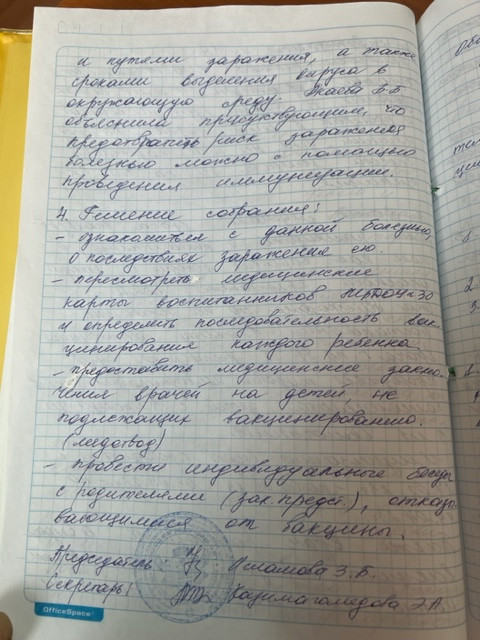 и путями заражения, а также
сроками выделения вируса в
окружающую среду. Акаева Б.Б
объяснила присутствующим, что
предотвратить риск заражения
болезнью можно с помощью
проведения иммунизации.
4. Решение собрания:
- ознакомиться с данной болезнью,
о последствиях заражения ею.
- пересмотреть медицинские
карты воспитанников МБДОУ №30
и определить последовательность вак-
цинирования каждого ребенка
- предоставить медицинские заклю-
чения врачей на детей, не
подлежащих вакцинированию.
(медотвод)
- провести индивидуальные беседы
с родителями (зак. предст.), отказы-
вающимися от вакцины.
Председатель: Исламова З.Б.
Секретарь: Казимагомедова Э.А.
OfficeSpace